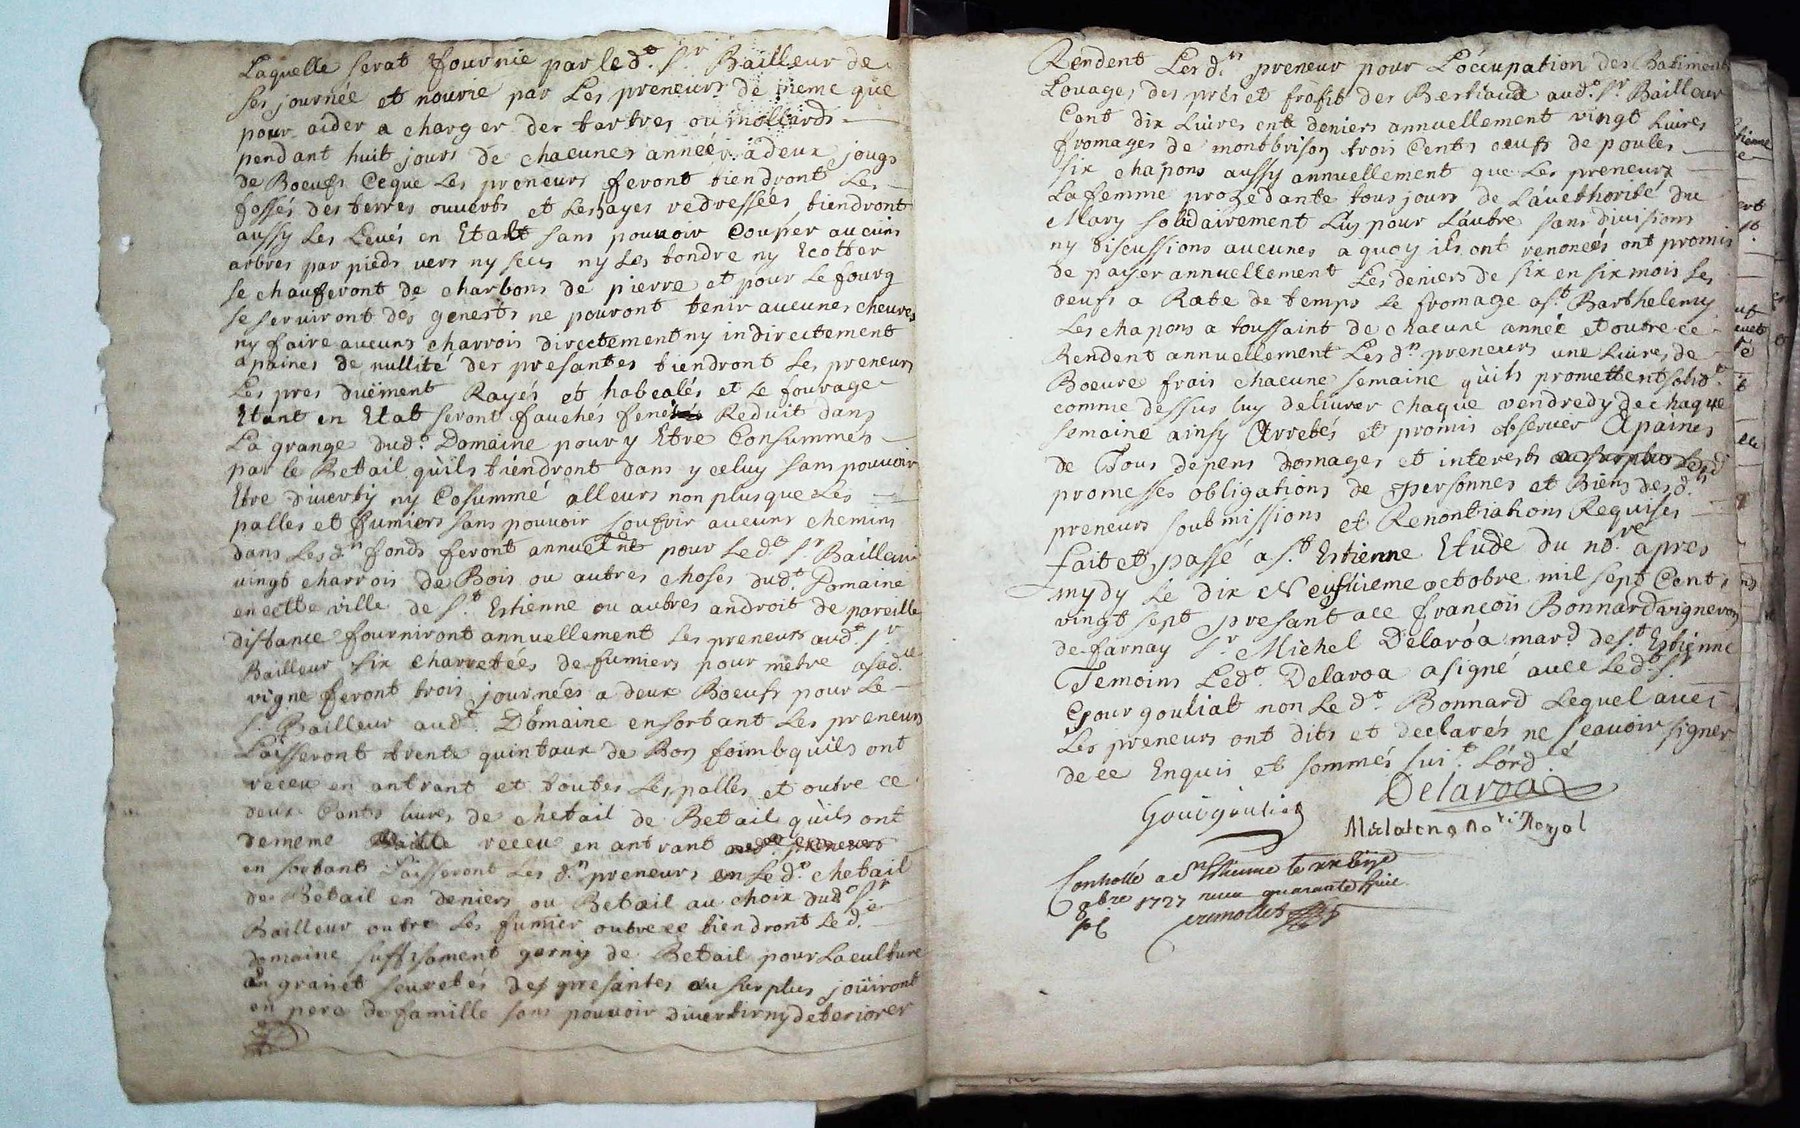 Laquelle serat fournie par le d.t S.r Bailleur de
ses journée et nourie par Les preneurs de meme que
pour aider a charger des tertres ou mollards
pendant huit jours de chacunes année à deux jougs
de Boeufs Ceque Les preneurs feront tiendront Les
fossés des terres ouverts et Leshayes redressées tiendront
aussy Les Levés en Etat sans pouvoir Couper aucuns
arbres par pieds vers ny secs ny Les tondre ny Ecotter
se chauferont de charbons de pierre et pour Le fourg
se serviront des genests ne pouront tenir aucunes chevres
ny faire aucuns charrois directement ny indirectement
apaines de nullité des presantes tiendront Les preneurs
Les pres duëment Rayés et habealés et Le fourage
Etant en Etat seront fauchés fenés Reduit dans
La grange dud.t Domaine pour y Etre Consummés
par le Betail qu'ils tiendront dans y celuy sans pouvoir
Etre diverty ny Cosummé alleurs non plus que Les
palles et fumiers sans pouvoir soufrir aucuns chemins
dans Les d.ts fonds feront annuel.nt pour Le d.t S.r Bailleur
vingt charrois de Bois ou autres choses dud.t Domaine
en cette ville de S.t Estienne ou autres androit de pareille
distance fourniront annuellement Les preneurs aud.t S.r
Bailleur six charretées de fumiers pour metre a sad.te
vigne feront trois journées a deux Boeufs pour Le
S.r Bailleur aud.t Domaine en sortant Les preneurs
Laisseront trente quintaux de Bon foin qu'ils ont
receu en antrant et toutes Les palles et outre ce
deux Cents livres de chetail de Betail qu'ils ont
dememe receu en antrant
en sortant Laisseront Les d.ts preneurs Le d.t chetail
de Betail en deniers ou Betail au choix dud.t S.r
Bailleur outre Les fumier outre ce tiendront Le d.t
domaine suffisament garny de Betail pour La culture
du grain et seuretés des presantes au surplus joüiront
en pere de famille sans pouvoir divertir ny deteriorer
Rendent Les d.ts preneur pour L'occupation des Batiments
Louages des prés et profit des Bestiaux aud.t S.r Bailleur
Cent dix Livres en deniers annuellement vingt Livres
fromages de montbrison trois Cents oeufs de poules
six chapons aussy annuellement que Les preneurs
La femme prozedante tousjours de L'auethorité du
Mary solidairement L'un pour L'autre sans divisions
ny discussions aucunes a quoy ils ont renoncés ont promis
de payer annuellement Les deniers de six en six mois Les
oeufs a Rate de temps Le fromage a S.t Barthelemy
Les chapons a toussaint de chacune année et outre ce
Rendent annuellement Les d.ts preneurs une Livres de
Boeure frais chacune semaine qu'ils promettent solid.t
comme dessus luy delivrer chaque vendredy de chaque
semaine ainsy Arretés et promis observer Apaines
de Tous depens domages et interests
promesses obligations de personnes et Biens desd.ts
preneurs soubmissions et Renontiations Requises
fait et passé a S.t Estienne Etude du no.re apres
mydy Le dix Neufiieme octobre mil sept Cents
vingt sept presant ace françois Bonnard vigneron
de farnay S.r Michel Delaroa mar.d de S.t Estienne
Temoins Le d.t Delaroa a signé avec Le d.t S.r
gourgouliat non Le d.t Bonnard Lequel avec
Les preneurs ont dits et declarés ne sçavoir signer
de ce Enquis et sommés sui.t L'ord.é
Delaroa
Gourgouliat
No.re Royal
Controllé a S.t Etienne le
8bre 1727 receu quarante huit
sol